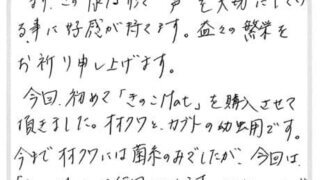 この様な形で 声を大切にしてい
る事に好感が持てます。益々の繁栄を
お祈り申し上げます。
今回、初めて「きのこMat」を購入させて
頂きました。オオクワと、カブトの幼虫用です。
今までオオクワには菌糸のみでしたが、今回は、